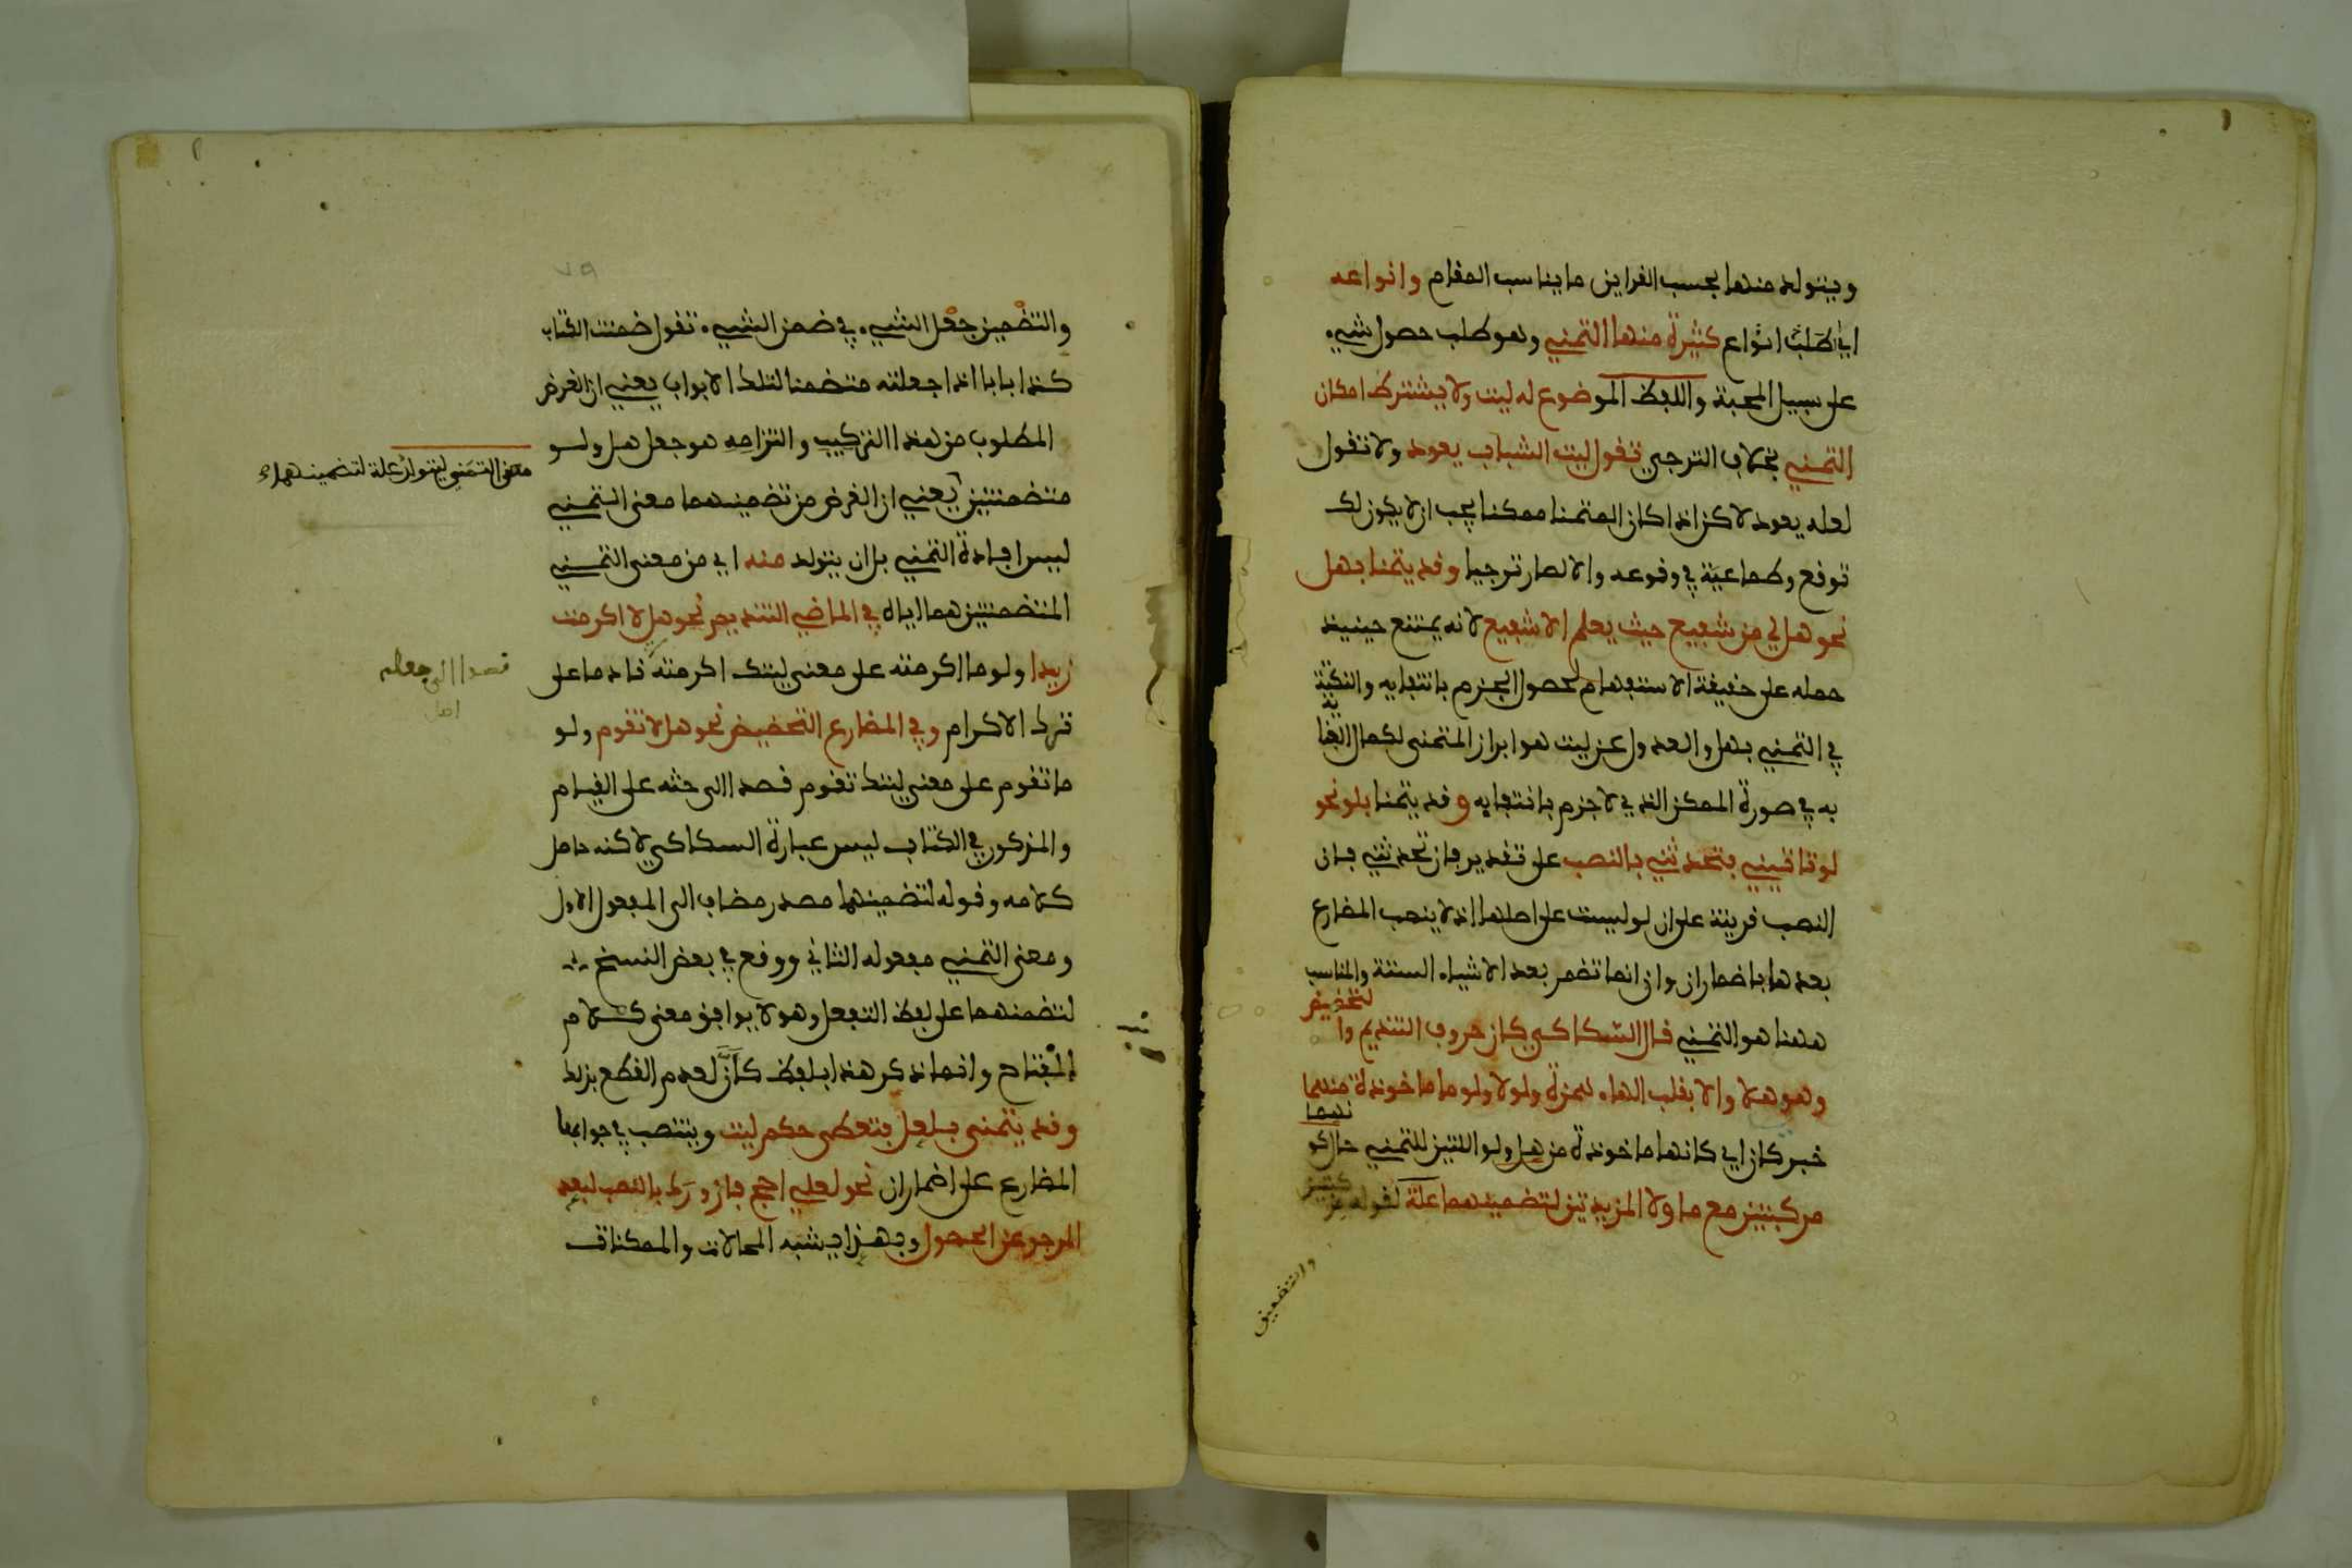 ويتولد منها بحسب القراين ما يناسب المقام وانواعه
اي طلب انواع كثيرة منها التمني وهو طلب حصول شيء
على سبيل المحبة واللفظ الموضوع له ليت ولا يشترط امكان
التمني بخلاف الترجي تقول ليت الشباب يعود ولا تقول
لعله يعود لاكن اذا كان المتمنا ممكنا يجب ان لا يكون لك
توقع وطماعية في وقوعه والا لصار ترجيا وقد يتمنا بهل
نحو هل لي من شفيع حيث يعلم الا شفيع لانه يمتنع حينيذ
حمله على حقيقة الاستفهام لحصول الجزم بانتفايه والنكتة
في التمني بهل والعدول عن ليت هو ابراز المتمنى لكمال العنا
ية
به في صورة الممكن الذي لا جزم بانتفايه وقد يتمنا بلو نحو
لو تاتيني فتحدثني بالنصب على تقدير فان تحدثني فان
النصب قرينة على ان لو ليست على اصلها اذ لا ينصب المضارع
بعدها باضمار ان وان انما تضمر بعد الاشياء الستة والمناسب
ههنا هو التمني قال السكاكي كان حروف التنديم وا
لتحضيض
وهو هلا والا بقلب الهاء همزة ولولا ولوما ماخوذة منهما
خبر كان اي كانها ماخوذة من هل ولو اللتين للتمني حال كو
نهما
مركبتين مع ما ولا المزيدتين لتضمينهما علة لقوله مر
كبتين
والتضمين
والتضمين جعل الشيء في ضمن الشيء تقول ضمنت الكتاب
كذا بابا اذا جعلته متضمنا لتلك الابواب يعني ان الغرض
المطلوب من هذا التركيب والتزامه هو جعل هل ولو
متضمنتين يعني ان الغرض من تضمينهما معنى التمني
معنى التمني ليتولد علة لتضمينهما
ليس افادة التمني بل ان يتولد منه اي من معنى التمني
المتضمنتين هما اياه في الماضي التنديم نحو هلا اكرمت
زيدا ولوما اكرمته على معنى ليتك اكرمته نادما على
قصدا الى جعله
ترك الاكرام وفي المضارع التحضيض نحو هلا تقوم ولو
ما تقوم على معنى ليتك تقوم قصدا الى حثه على القيام
والمذكور في الكتاب ليس عبارة السكاكي لاكنه حاصل
كلامه وقوله لتضمينهما مصدر مضاف الى المفعول الاول
ومعنى التمني مفعوله الثاني ووقع في بعض النسخ
لتضمنهما على لفظ التفعل وهو لا يوافق معنى كلام
المفتاح وانما ذكر هذا بلفظ كان لعدم القطع بذلك
وقد يتمنى بلعل فتعطى حكم ليت وينتصب في جوابها
المضارع على اضمار ان نحو لعلي احج فازورك بالنصب لبعد
المرجو عن الحصول وبهذا يشبه المحالات والممكنات